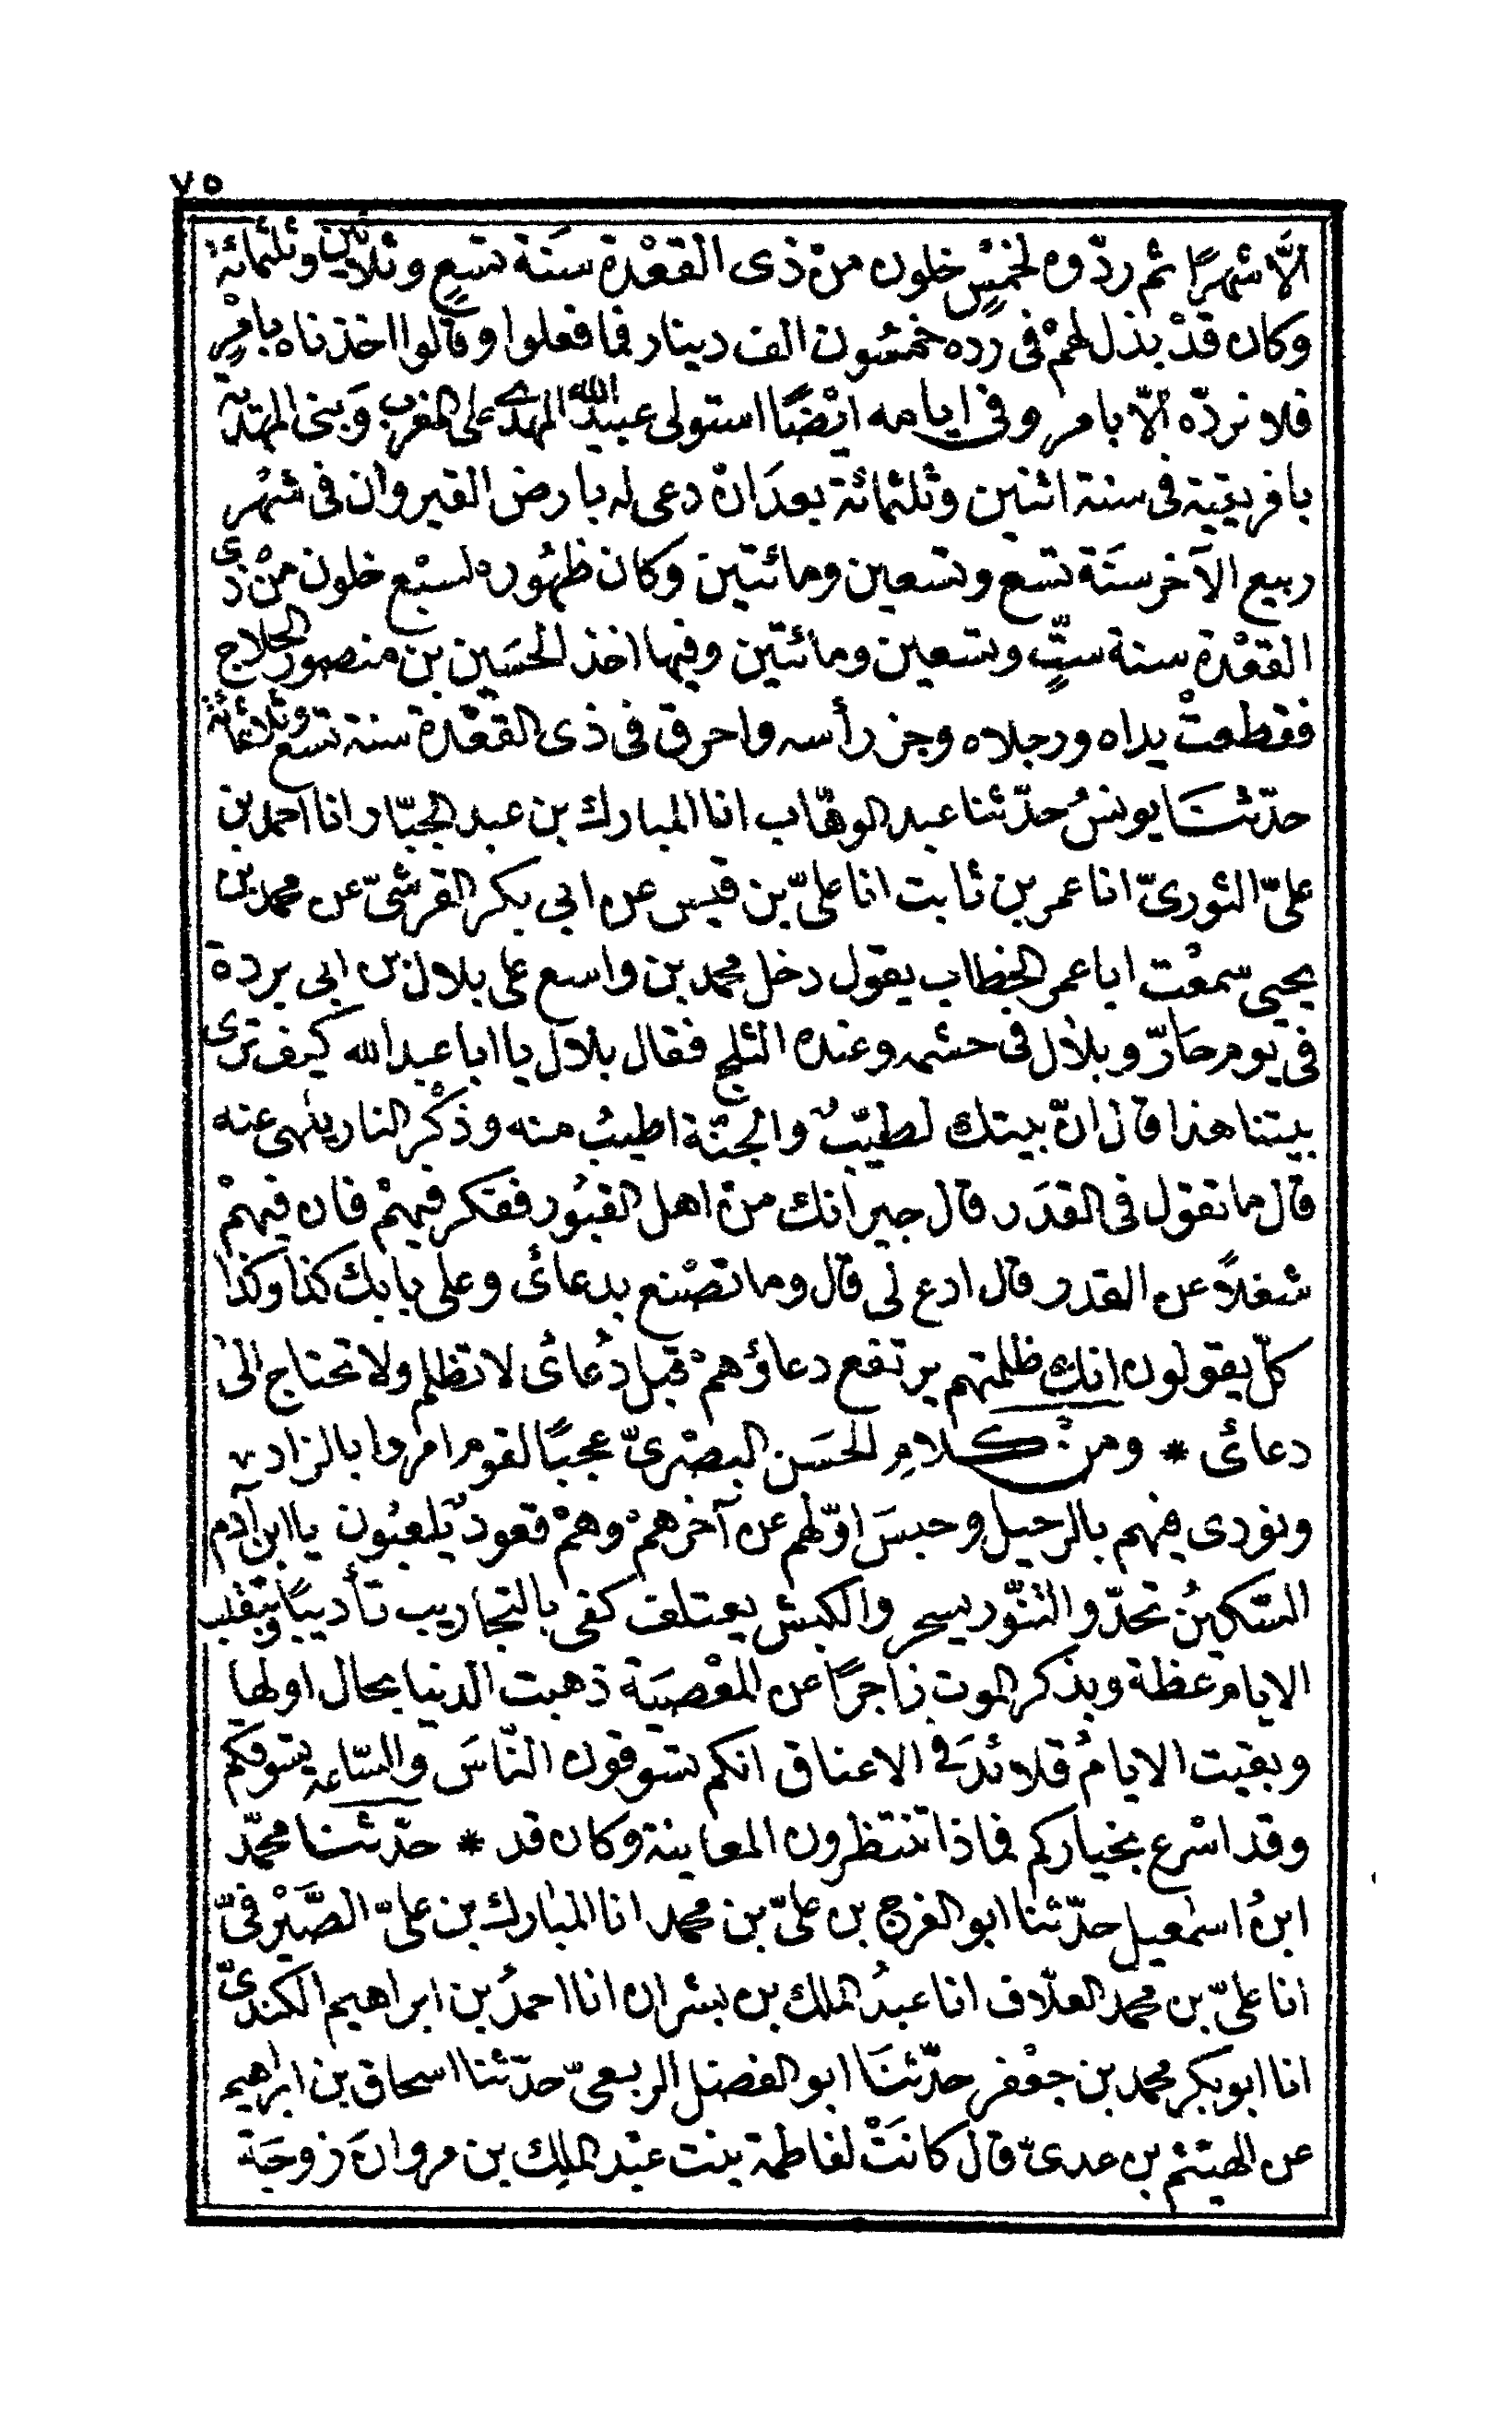 ٧٥
الّا شهرًا ثم ردّوه لخمْسٍ خلون منْ ذى القعْدة سنَة تسعٍ وثلاثين وثلثمائة
وكان قدْ بذل لهمْ فى رده خمسُون الف دينار فما فعلوا وقالوا اخذناه بامْرٍ
فلا نردّه الّا بامر وفى ايامه ايْضًا استولى عبيد الله المهدى على المغرب وَبنى المهدية
بافريقية فى سنة اثنين وثلثمائة بعدَ انْ دعى له بارض القيروان فى شهْر
ربيع الآخر سنَة تسع وتسعين ومائتين وكان ظهُوره لسبْع خلون منْ ذى
القعْدة سنة ستٍّ وتسعين ومائتين وفيها اخذ الحسَين بن منصور الحلاج
فقطعتْ يداه ورجلاه وجز رأسه واحرق فى ذى القعْدة سنة تسع وثلاثمائة
حدّثنَا يونسُ حدّثنا عبد الوهّاب انا المبارك بن عبد الجبّار انا احمد بن
علىّ الثورىّ انا عمر بن ثابت انا علىّ بن قيس عن ابى بكر القرشىّ عن محمد بن
يحيى سمعْت ابا عمر الخطاب يقول دخل محمد بن واسع على بلال بن ابى بردة
فى يوم حَارّ وبلال فى حشمه وعنده الثلج فقال بلال يا ابا عبد الله كيف ترى
بيتنا هذا قال انّ بيتك لطيّبٌ والجنّة اطيبُ منه وذكْر النار ينهى عنه
قال ما تقول فى القدَر قال جيرانك منْ اهل القبُور ففكر فيهمْ فان فيهمْ
شغلاً عن القدر قال ادع لى قال وما تصْنع بدعائى وعلى بابك كذا وكذا
كلّ يقولون انك ظلمتهم يرتفع دعاؤهمْ قبل دُعائى لا تظلم ولا تحتاج الى
دعائى * ومن كلامِ الحسَن البصْرىّ عجبًا لقوم امروا بالزاد
ونودى فيهم بالرحيل وحبسَ اوّلهم عن آخرهمْ وهمْ قعودٌ يلعبُون يا ابن آدم
السّكينُ تحدّ والتنّور يسجر والكبش يعتلف كفى بالتجاريب تأديبًا وبتقلب
الايام عظة وبذكر الموت زاجرًا عن المعْصيَة ذهبت الدنيا بحال اولها
وبقيت الايامُ قلائدَ فى الاعناق انكم تسوقون النّاسَ والسّاعة يتسوقكم
وقد اسْرع بخياركم فماذا تنتظرون المعاينة وكان قد * حدّثنا محمّد
ابنُ اسمٰعيل حدّثنا ابو الفرج بن علىّ بن محمد انا المبارك بن علىّ الصَّيْرفىّ
انا علىّ بن محمد العلّاف انا عبدُ الملك بن بشران انا احمدُ بن ابراهيم الكندىّ
انا ابو بكر محمد بن جعْفر حدّثنَا ابو الفضل الربعىّ حدّثنا اسحاق بن ابراهيم
عن الهيثم بن عدىّ قال كانَتْ لفاطمة بنت عبْد الملِك بن مروانَ زوجَة